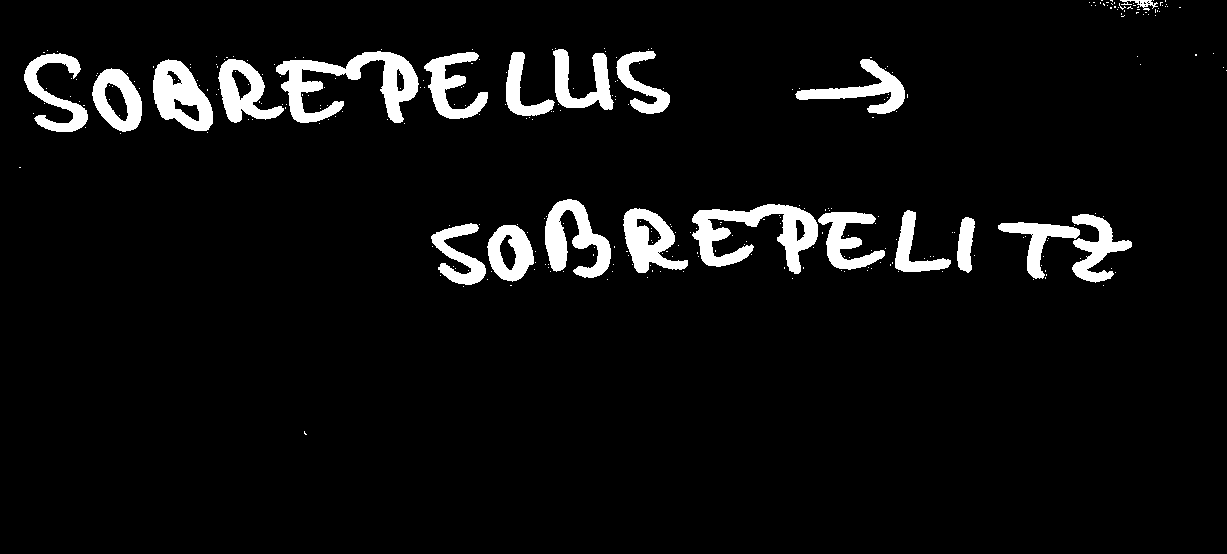 SOBREPELLIS →
SOBREPELITZ